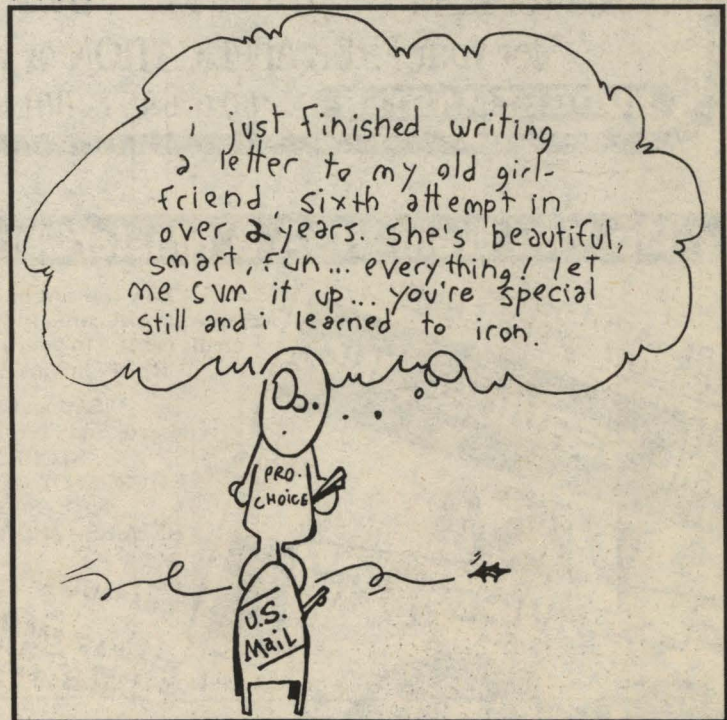 i just finished writing
a letter to my old girl-
friend, sixth attempt in
over 2 years. She's beautiful,
smart, fun... everything! let
me sum it up... you're special
still and i learned to iron.
PRO-
CHOICE
U.S.
MaiL